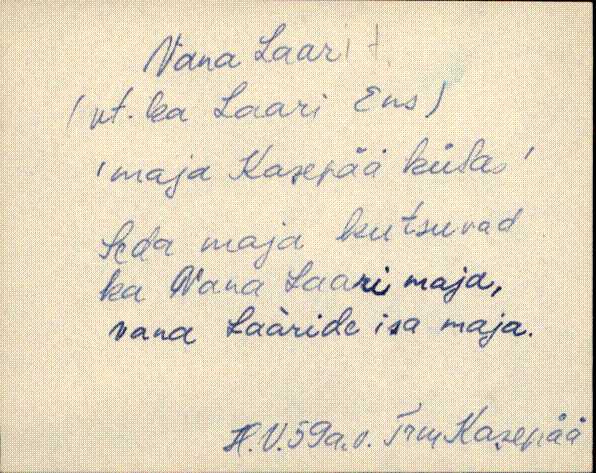 Vana Laari t.
(vt. ka Laari Ens)
'maja Kasepää külas'
Seda maja kutsuvad
ka Vana Laari maja,
vana Laaride isa maja.
H.V. 59 a.v. Trm Kasepää